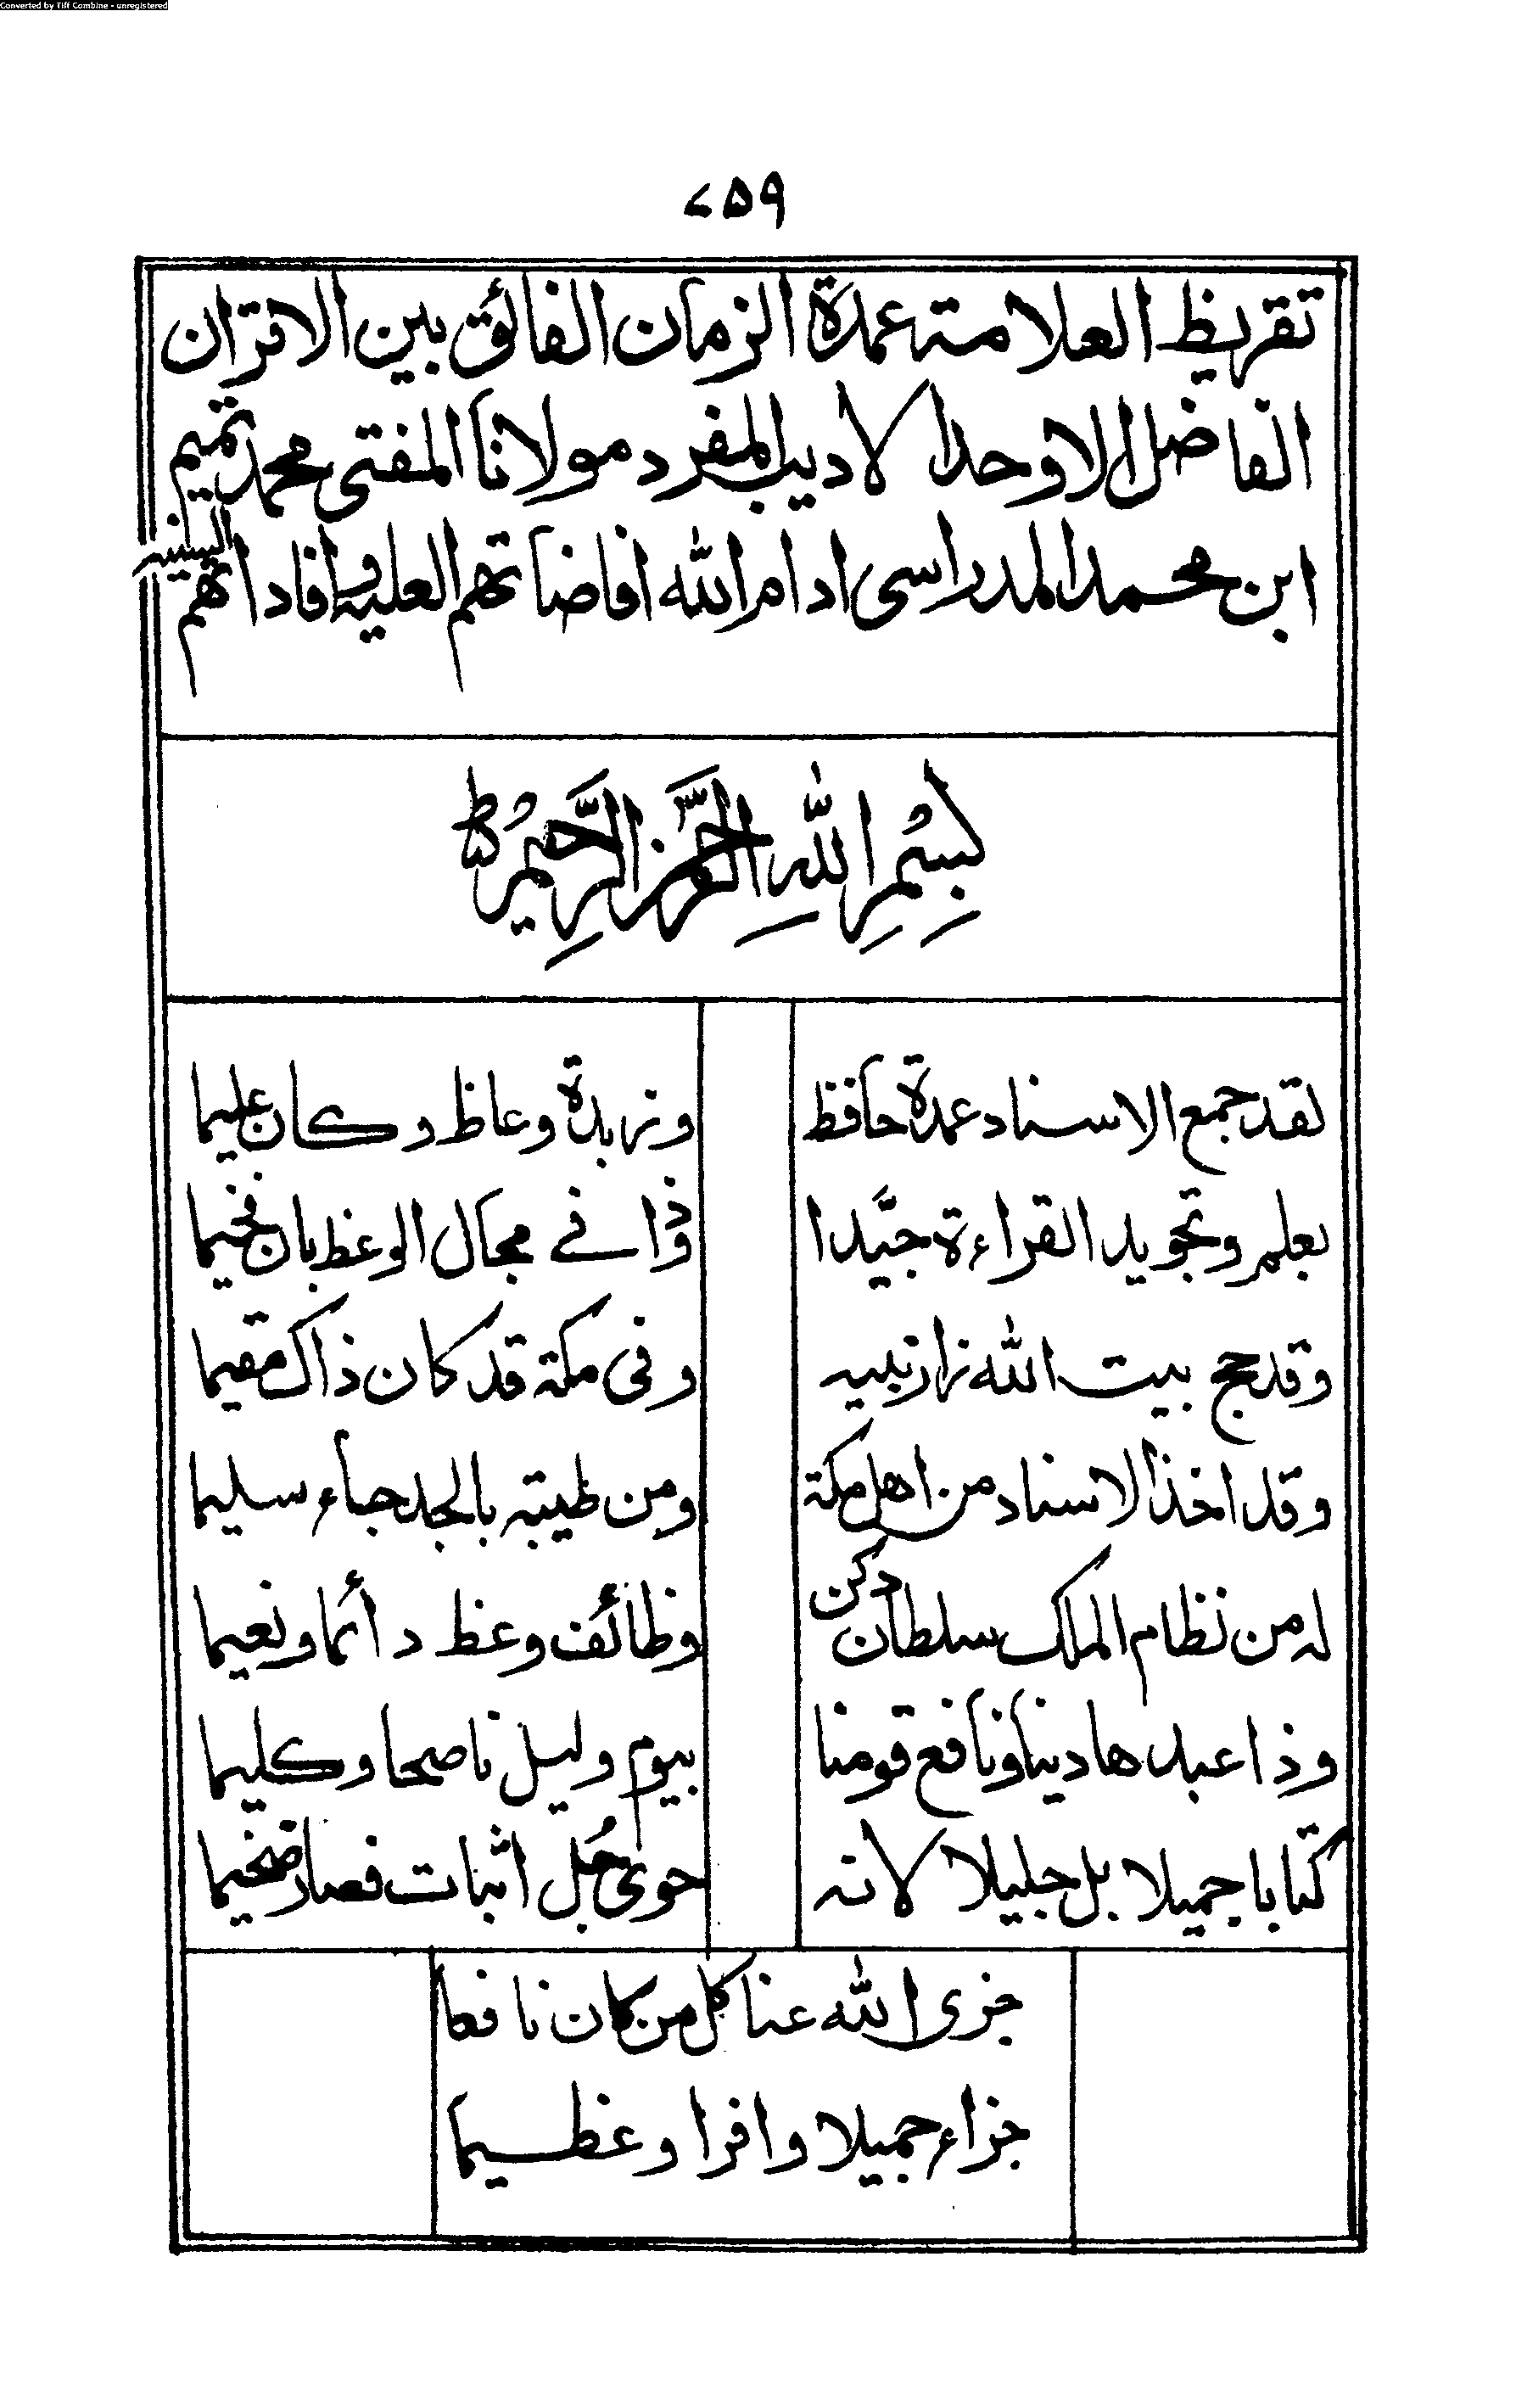 Converted by Tiff Combine - unregistered
٤٥٩
تقريظ العلامة عمدة الزمان الفائق بين الاقران
الفاضل الاوحد الاديب المفرد مولانا المفتى محمد تميم
ابن محمد المدراسى ادام الله افاضاتهم العلية وافاداتهم السنية
بِسْمِ اللهِ الرَّحْمٰنِ الرَّحِيْمِ ط
لقد جمع الاسناد عمدة حافظ وزبدة وعاظ وكان عليما
بعلم وتجويد القراءة جيّدا وذا في مجال الوعظ بان فخيما
وقد حج بيت الله زار نبيه وفى مكة قد كان ذاك مقيما
وقد اخذ الاسناد من اهل مكة ومن طيبة بالجد جاء سليما
له من نظام الملك سلطان دكن وظائف وعظ دائما ونعيما
وذا عبد هادينا ونافع قومنا بيوم وليل ناصحا وكليما
كتابا جميلا بل جليلا لانه حوى جُل اثبات فصار ضخيما
جزى الله عنا كل من كان نافعا
جزاء جميلا وافرا وعظيما